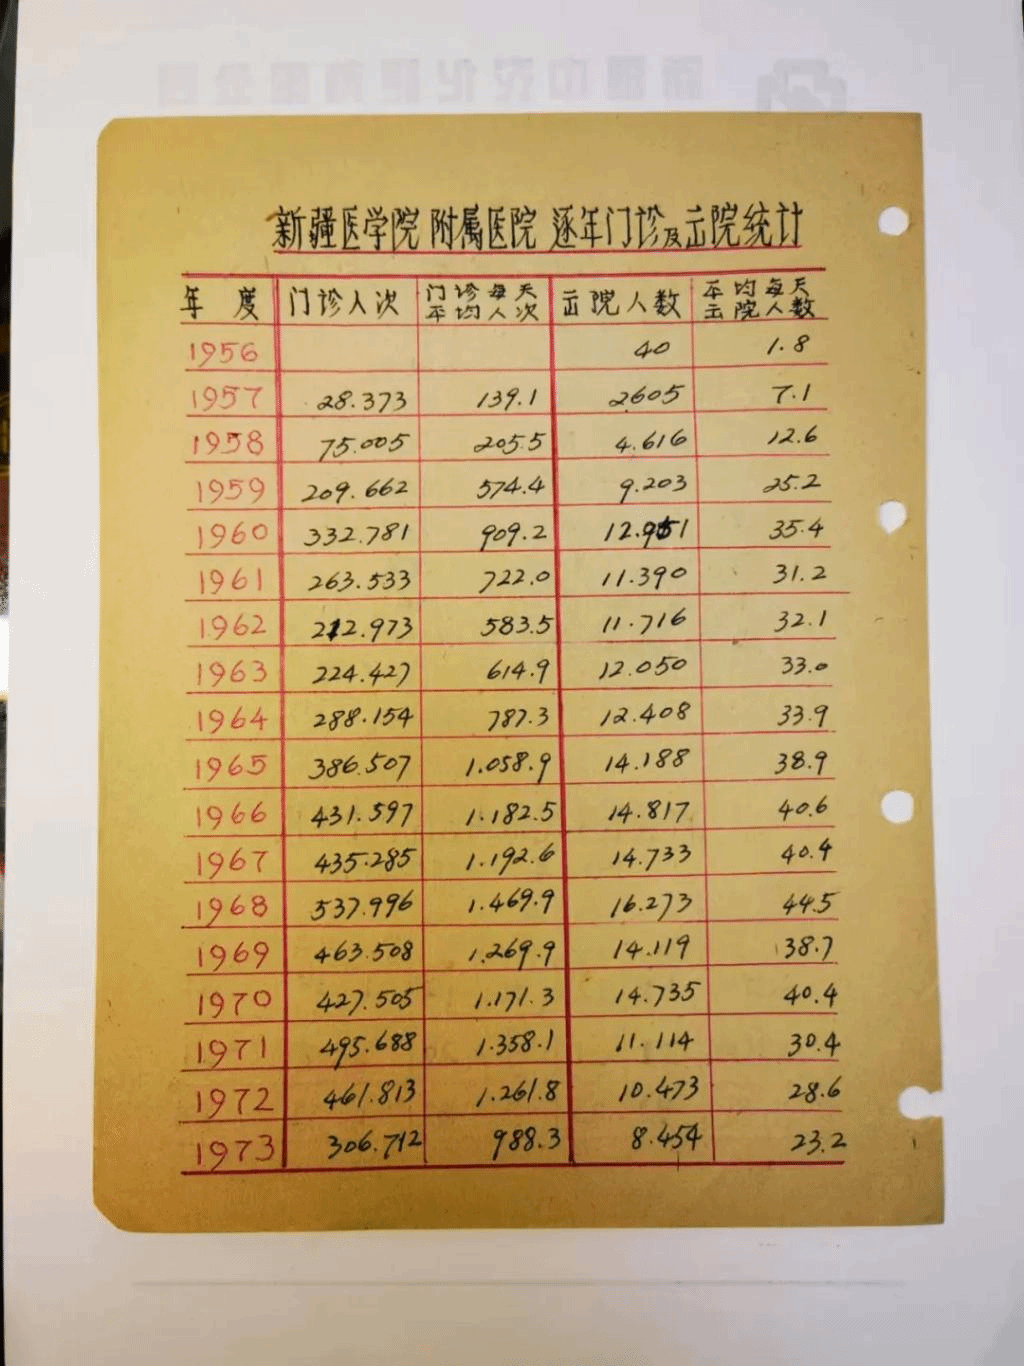 新疆医学院附属医院 逐年门诊及出院统计
年度 门诊人次 门诊每天平均人次 出院人数 平均每天出院人数
1956 40 1.8
1957 28.373 139.1 2605 7.1
1958 75.005 205.5 4.616 12.6
1959 209.662 574.4 9.203 25.2
1960 332.781 909.2 12.951 35.4
1961 263.533 722.0 11.390 31.2
1962 212.973 583.5 11.716 32.1
1963 224.427 614.9 12.050 33.0
1964 288.154 787.3 12.408 33.9
1965 386.507 1.058.9 14.188 38.9
1966 431.597 1.182.5 14.817 40.6
1967 435.285 1.192.6 14.733 40.4
1968 537.996 1.469.9 16.273 44.5
1969 463.508 1.269.9 14.119 38.7
1970 427.505 1.171.3 14.735 40.4
1971 495.688 1.358.1 11.114 30.4
1972 461.813 1.261.8 10.473 28.6
1973 306.712 988.3 8.454 23.2